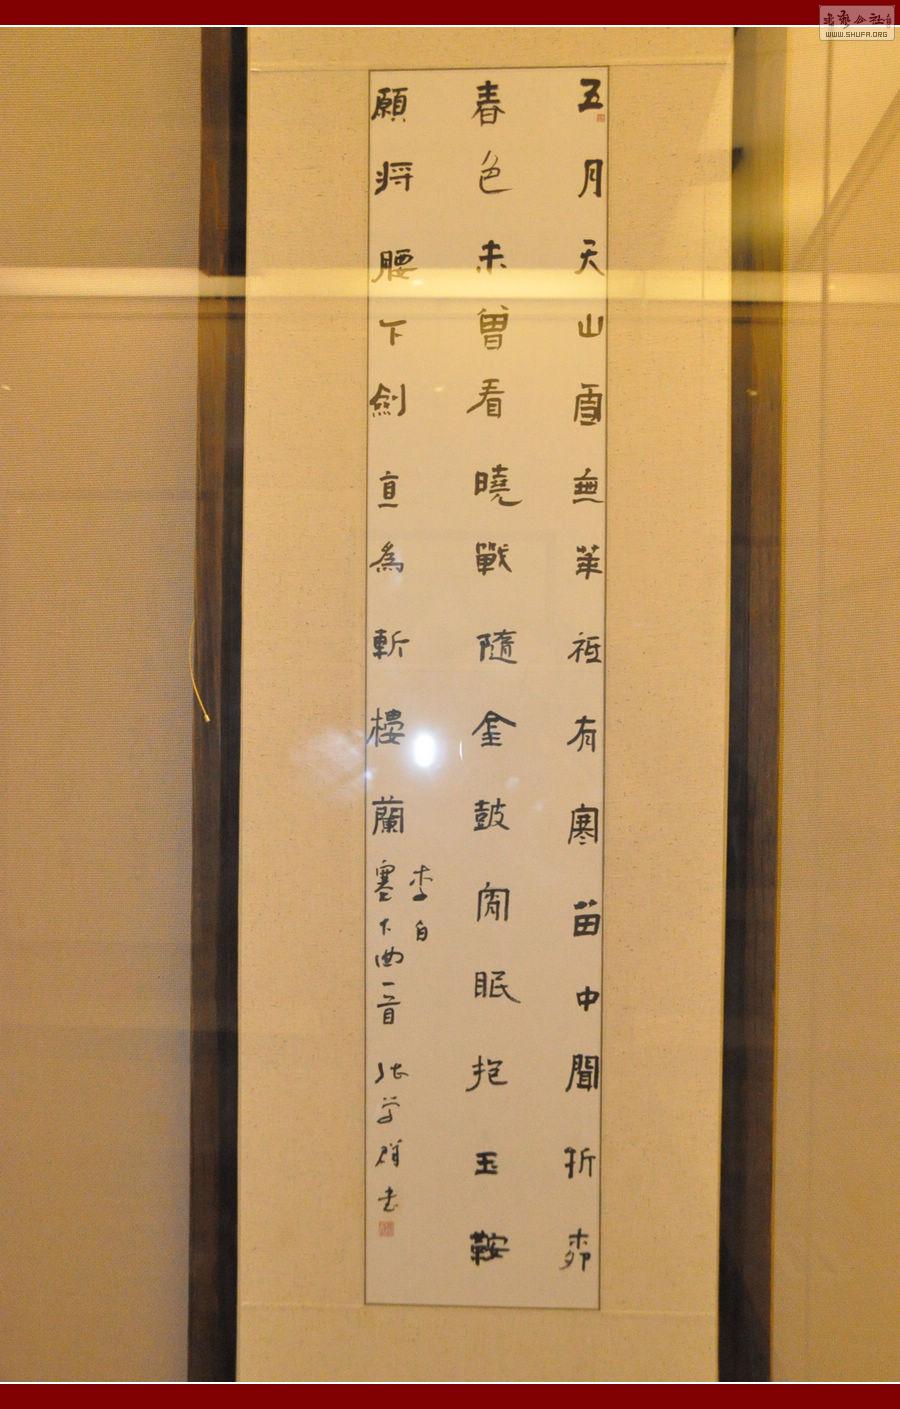 五月天山雪無華祗有寒苗中聞折桞
春色未曾看曉戰隨金鼓宵眠抱玉鞍
願將腰下劍直為斬樓蘭
李白
塞下曲一首 張學群书
WWW.SHUFA.ORG